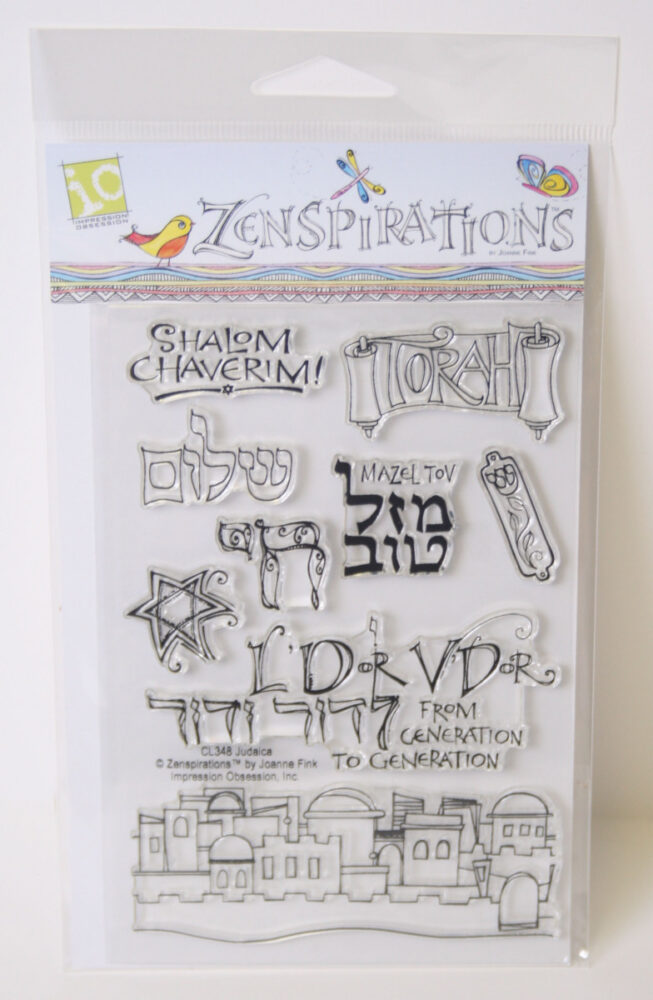 iO
IMPRESSION
OBSESSION
ZENSPIRATIONS™
BY JOANNE FINK
SHALOM
CHAVERIM!
TORAH
שלום
MAZEL TOV
מזל
טוב
חי
L'DOR V'DOR
לדור ודור
FROM
GENERATION
TO GENERATION
CL348 Judaica
© Zenspirations™ by Joanne Fink
Impression Obsession, Inc.